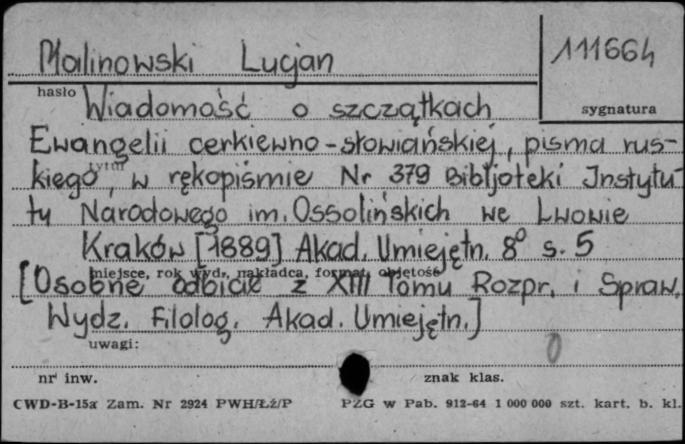 Malinowski Lucjan
111664
hasło
sygnatura
Wiadomość o szczątkach
Ewangelii cerkiewno-słowiańskiej, pisma rus-
tytuł
kiego, w rękopiśmie Nr 379 Bibljoteki Instytu-
tu Narodowego im. Ossolińskich we Lwowie
Kraków [1889] Akad. Umiejętn. 8° s. 5
miejsce, rok wyd., nakładca, format, objętość
[Osobne odbicie z XIII Tomu Rozpr. i Spraw.
Wydz. Filolog. Akad. Umiejętn.]
uwagi:
nr inw.
znak klas.
CWD-B-15a Zam. Nr 2924 PWH/Łź/P
PZG w Pab. 912-64 1 000 000 szt. kart. b. kl.